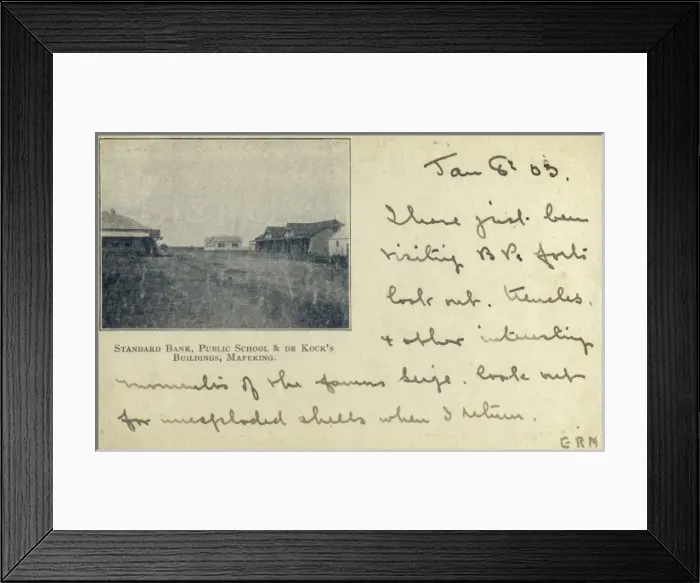 Jan 6th 03.
I have just been
visiting B P's forts
look out. trenches.
& other interesting
STANDARD BANK, PUBLIC SCHOOL & DE KOCK'S
BUILDINGS, MAFEKING.
momentos of the famous seige. look out
for unexploded shells when I return.
G R N